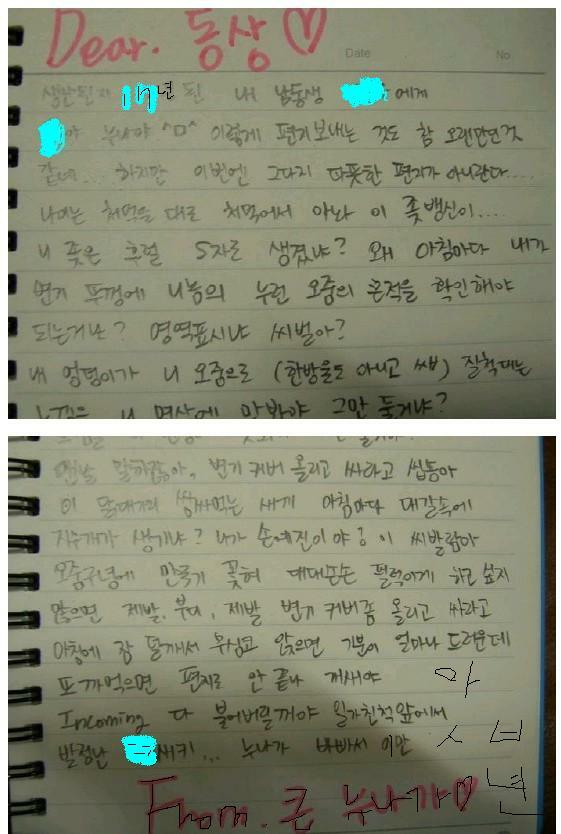 Dear. 동상♡
Date No.
생난된지 17년 된 내 남동생 에게
야 누나야 ^ㅁ^ 이렇게 편지보내는 것도 참 오랜만인것
같네... 하지만 이번엔 그다지 따뜻한 편지가 아니란다....
나이는 처먹을 대로 처먹어서 아놔 이 좆뱅신이....
니 좆은 후렬 S자로 생겼냐? 왜 아침마다 내가
변기 뚜껑에 니놈의 누런 오줌의 흔적을 확인해야
되는거냐? 영역표시냐 씨벌아?
내 엉덩이가 니 오줌으로 (한방울도 아니고 씨바) 질척대는
니 면상에 맛봐야 그만 둘거냐?
맨날 말하잖아, 변기 커버 올리고 싸라고 씹둥아
이 쌈싸먹는 새끼 아침마다 대갈속에
지우개가 생기냐? 내가 손예진이야? 이 씨발람아
오줌구녕에 만국기 꽂혀 대대손손 펄럭이게 하고 싶지
않으면 제발, 부디, 제발 변기 커버좀 올리고 싸라고
아침에 잠 덜깨서 무심코 앉으면 기분이 얼마나 드러운데
또 까먹으면 편지로 안 끝나 개새야
Incoming 다 불어버릴꺼야 일가친척앞에서
발정난 새키... 누나가 바빠서 이만
From. 큰 누나가♡